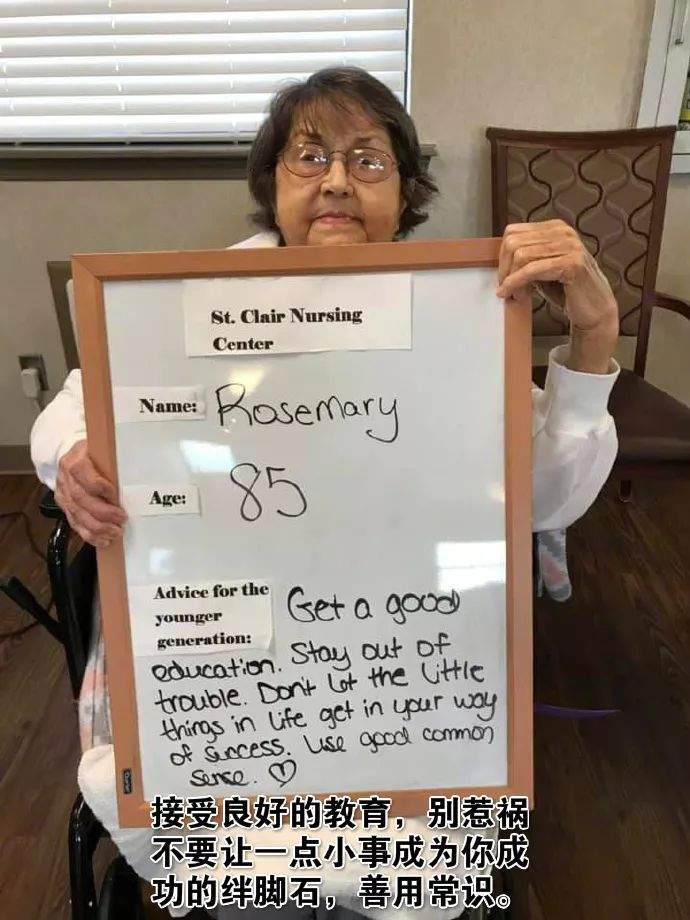 St. Clair Nursing
Center
Name: Rosemary
Age: 85
Advice for the
younger
generation: Get a good
education. Stay out of
trouble. Don't let the little
things in life get in your way
of success. Use good common
sense. ♡
接受良好的教育，别惹祸
不要让一点小事成为你成
功的绊脚石，善用常识。